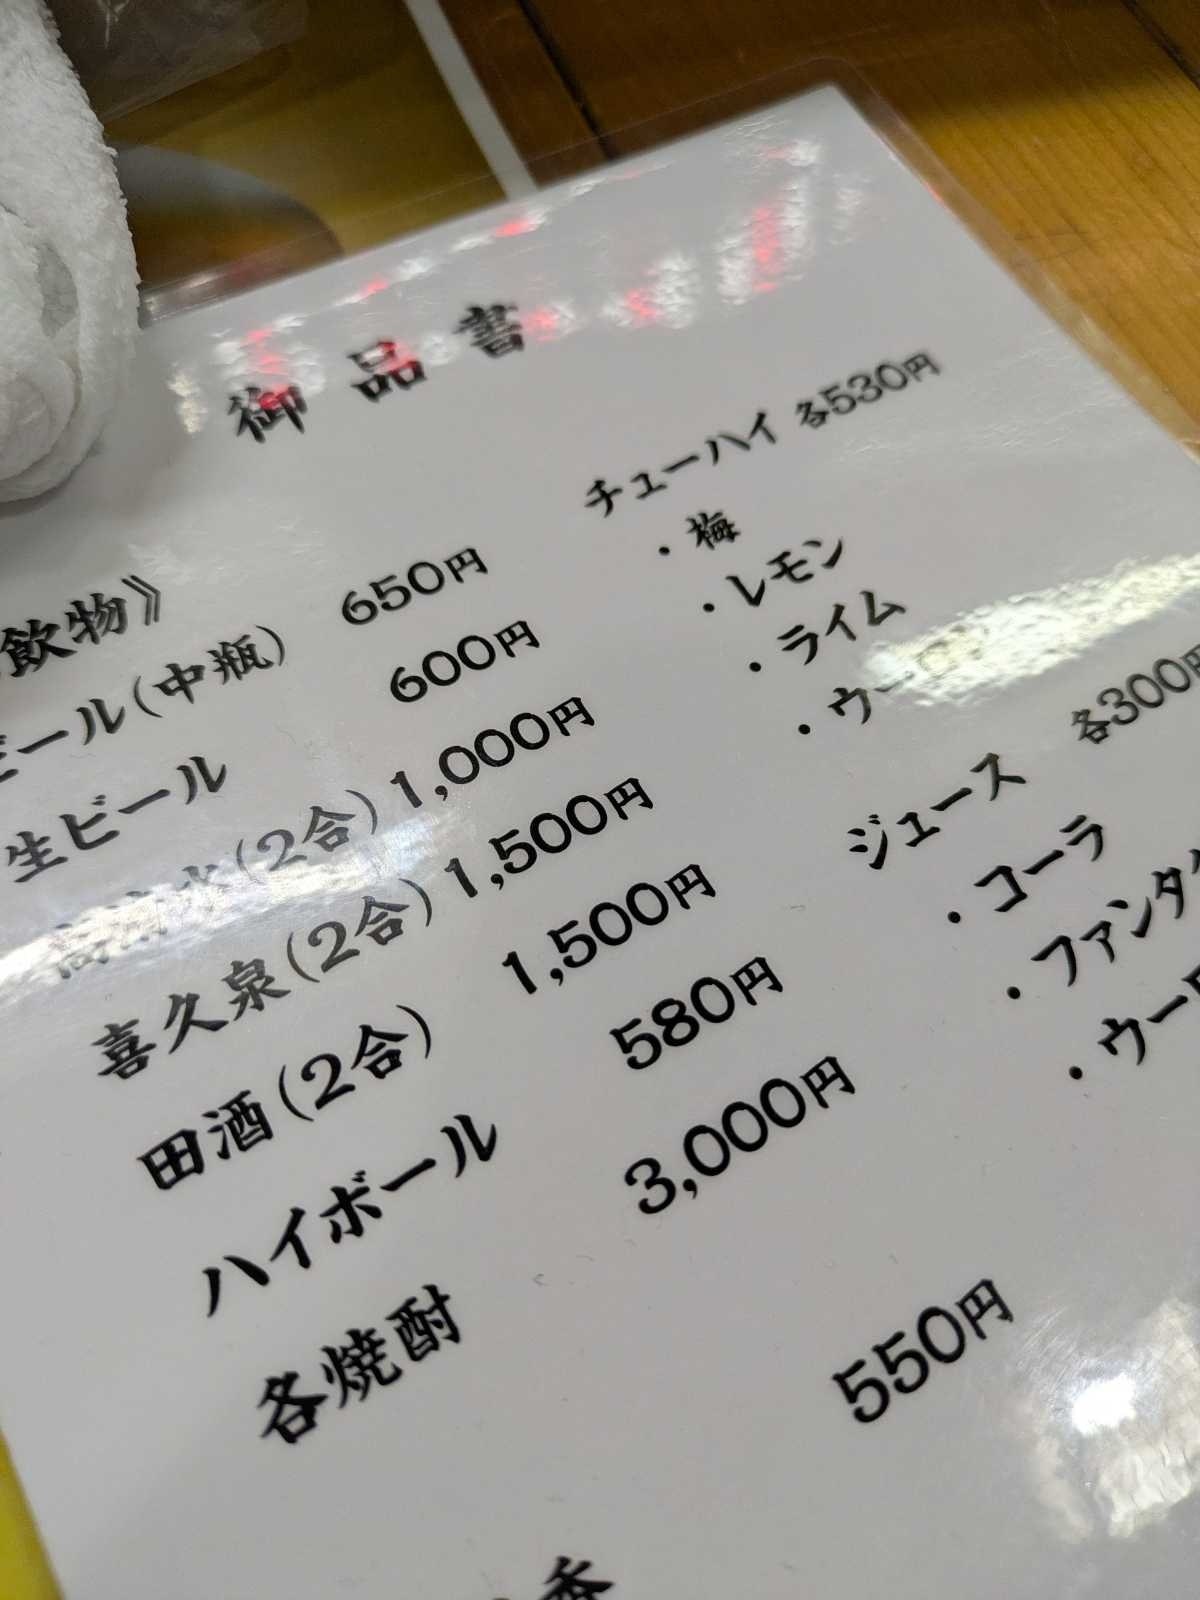 御品書
飲物》
ビール(中瓶) 650円
生ビール 600円
(2合) 1,000円
喜久泉(2合) 1,500円
田酒(2合) 1,500円
ハイボール 580円
各焼酎 3,000円
550円
チューハイ 各530円
・梅
・レモン
・ライム
・ウーロン
ジュース 各300円
・コーラ
・ファンタ
・ウーロ